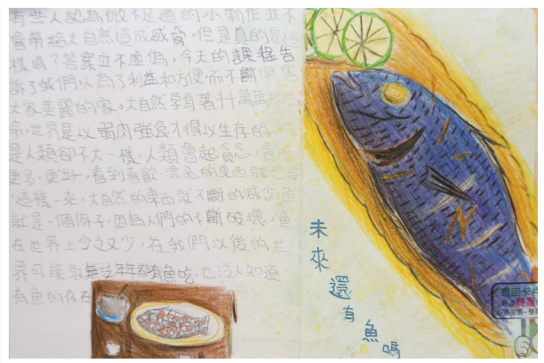 有些人認為微不足道的小動作並不
會帶給大自然造成威脅，但是真的是這
樣嗎？答案並不虛偽，今天的課程告
訴了我們，人為了利益和方便而不斷傷害
大家美麗的家。大自然孕育著十萬萬的生
命，世界是以弱肉強食才得以生存的，可
是人類卻不大一樣，人類會起貪念，
更多，更好，看到喜歡
這樣一來，大自然的東西就不斷的減少，魚
就是一個例子，因為人們的不斷破壞，魚
在世界上少之又少，在我們以後的世
界可能就無法年年都有魚吃，也沒人知道
有魚的存在
未來還有魚嗎